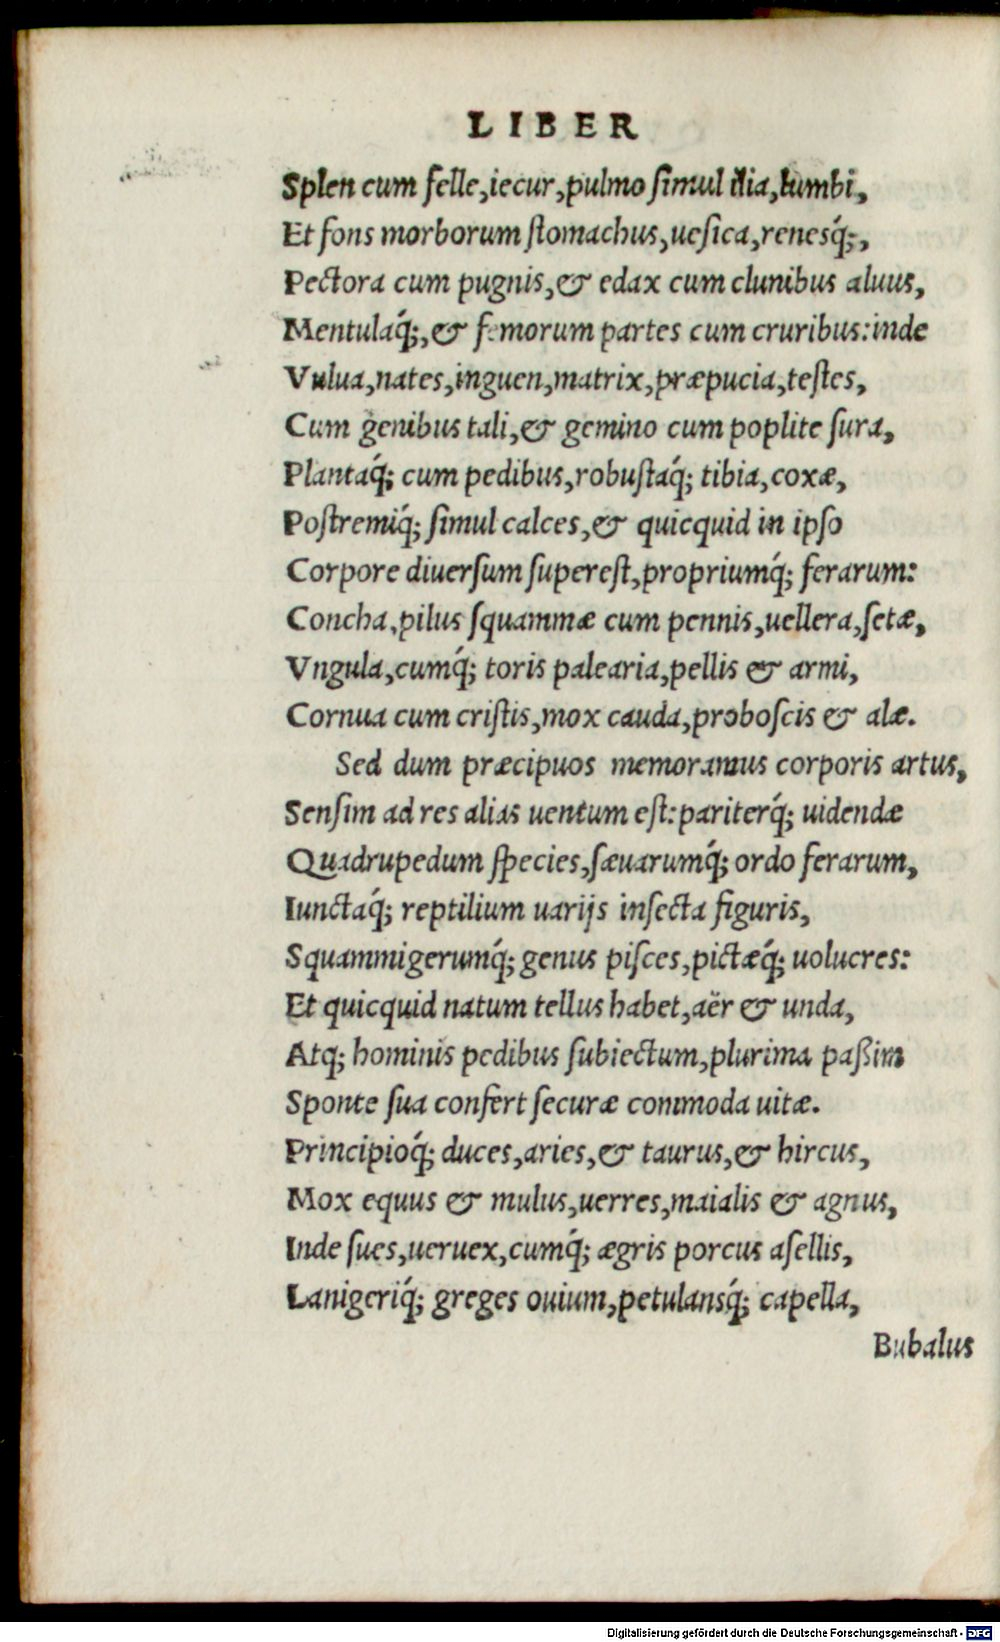 LIBER
Splen cum felle,iecur,pulmo ſimul ilia,lumbi,
Et fons morborum ſtomachus,ueſica,renesq́;,
Pectora cum pugnis,& edax cum clunibus aluus,
Mentulaq́;,& femorum partes cum cruribus:inde
Vulua,nates,inguen,matrix,præpucia,teſtes,
Cum genibus tali,& gemino cum poplite ſura,
Plantaq́; cum pedibus,robuſtaq́; tibia,coxæ,
Poſtremiq́; ſimul calces,& quicquid in ipſo
Corpore diuerſum ſupereſt,propriumq́; ferarum:
Concha,pilus ſquammæ cum pennis,uellera,ſetæ,
Vngula,cumq́; toris palearia,pellis & armi,
Cornua cum criſtis,mox cauda,proboſcis & alæ.
Sed dum præcipuos memoramus corporis artus,
Senſim ad res alias uentum eſt:pariterq́; uidendæ
Quadrupedum ſpecies,ſæuarumq́; ordo ferarum,
Iunctaq́; reptilium uarijs inſecta figuris,
Squammigerumq́; genus piſces,pictæq́; uolucres:
Et quicquid natum tellus habet,aër & unda,
Atq; hominis pedibus ſubiectum,plurima paßim
Sponte ſua confert ſecuræ commoda uitæ.
Principioq́; duces,aries,& taurus,& hircus,
Mox equus & mulus,uerres,maialis & agnus,
Inde ſues,ueruex,cumq́; ægris porcus aſellis,
Lanigeriq́; greges ouium,petulansq́; capella,
Bubalus
Digitalisierung gefördert durch die Deutsche Forschungsgemeinschaft - DFG